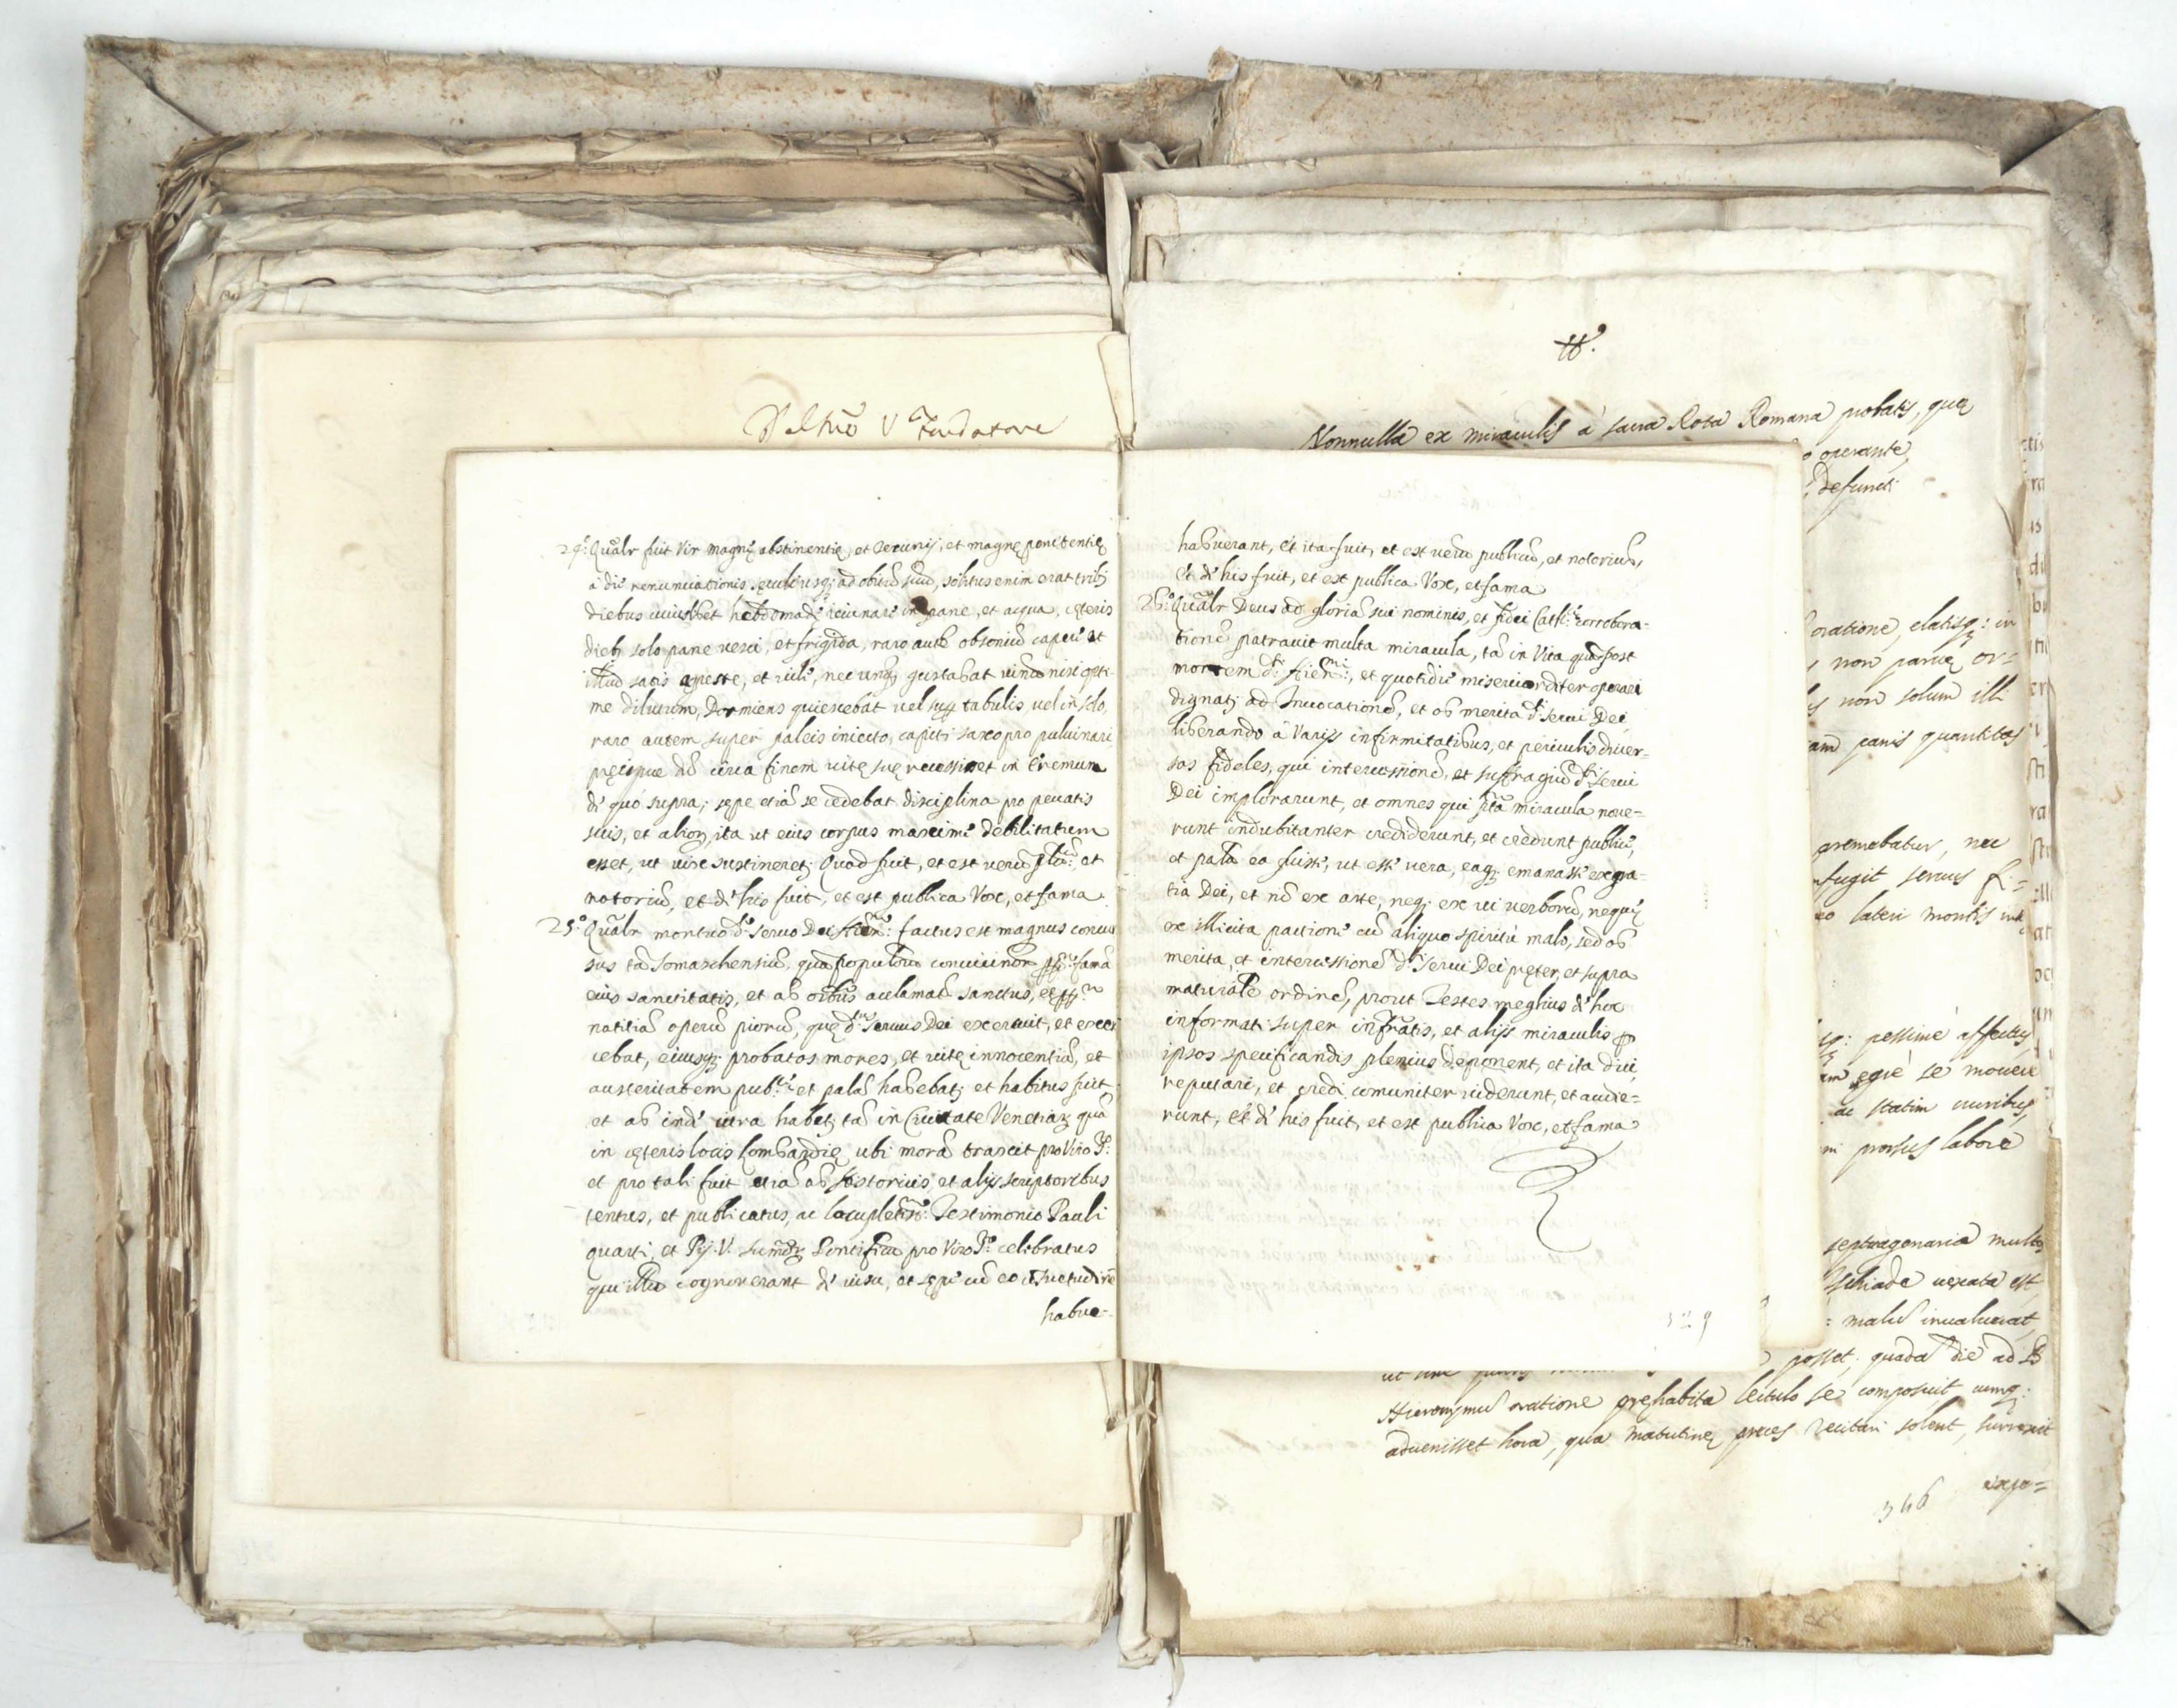 Nonnulla ex miraculis à sacra Rota Romana probatis, quę
operante,
defuncti
24.º Qualr fuit Vir magnę abstinentię, et Ieiunij, et magnę penitentię
à die renunciationis sęculi usq; ad obitũ suũ, solitus enim erat tribꝫ
diebus cuiuslibet hebdomadę ieiunare in pane, et aqua, cęteris
diebꝫ solo pane vesci, et frigida, raro autẽ obsoniũ capere et
illud satis agreste, et vile, nec unqꝫ gustabat vinũ nisi opti-
me dilutum, Dormiens quiescebat vel supꝫ tabulis, vel in solo,
raro autem super paleis iniecto, capiti saxo pro pulvinari
pręcipue dũ circa finem vitę suę recessisset in Eremum
de quo supra; sępe etiã se cedebat disciplina pro peccatis
suis, et alioꝝ, ita ut eius corpus maxime debilitatum
esset, ut vix sustineretꝫ Quod fuit, et est verũ pũ: et
notoriũ, et de his fuit, et est publica Vox, et fama
25.º Qualr mortuo dº Servo Dei Hierº: factus est magnus concur
sus tã Somaschensiũ, quã populorũ convicinoꝝ ppꝫ famã
eius sanctitatis, et ab oĩbus acclamatꝫ sanctus, et ppꝫ
notitiã operũ piorũ, quę ds Servus Dei exercuit, et exer
cebat, eiusqꝫ probatos mores, et vitę innocentiã, et
austeritatem pubce et palã habebatꝫ et habitus fuit
et ab inde citra habetꝫ tã in Civitate Venetiaꝝ quã
in cęteris locis Lombardię ubi morã traxit pro Viro Sº:
et pro tali fuit etiã ab Historicis, et alijs scriptoribus
tentus, et publicatus, ac locupletmo: Testimonio Pauli
quarti, et Pij V. summoꝝ Pontificũ pro Viro Sº celebratus
qui illũ cognoverant de visu, et sępe cũ eo csuetudinẽ
habue-
habuerant, et ita fuit, et est verũ publicũ, et notoriũ,
Et de his fuit, et est publica Vox, et fama
26.º Qualr Deus ad gloriã sui nominis, et fidei Cathe: corrobora-
tionẽ patravit multa miracula, tã in Vita quã post
mortem di Hiermi:, et quotidie misericorditer operari
dignatꝫ ad Invocationẽ, et ob merita di Servi Dei
liberando à Varijs infirmitatibus, et periculis diver-
sos fideles, qui intercessionẽ, et suffragiũ di Servi
Dei implorarunt, et omnes qui pta miracula nove-
runt indubitanter crediderunt, et credunt publice,
et palã ea fuisse, ut esse vera, eaqꝫ emanasse ex gra-
tia Dei, et nõ ex arte, neqꝫ ex vi verborũ, neque
ex illicita pactione cũ aliquo spiritu malo, sed ob
merita, et intercessionẽ di Servi Dei pręter, et supra
naturale ordinẽ, prout Testes meglius de hoc
informati super infrãtis, et alijs miraculis p
ipsos specificandis plenius deponent, et ita dici
reputari, et credi comuniter viderunt, et audie-
runt, Et de his fuit, et est publica Vox, et fama
329
oratione, elatisqꝫ: in
non parvę or=
non solum illi
panis quantitas
premebatur, nec
servus
lateri montis
pessime affectus
ęgrè se movere
ac statim
prorsus labore
septuagenaria multos
ischiade vexata est
malũ invaluerat,
posset; quadã die ad B
Hieronymũ oratione pręhabita lectulo se composuit, cumq:
advenisset hora, qua matutinę preces recitari solent, surrexit
expe=
346